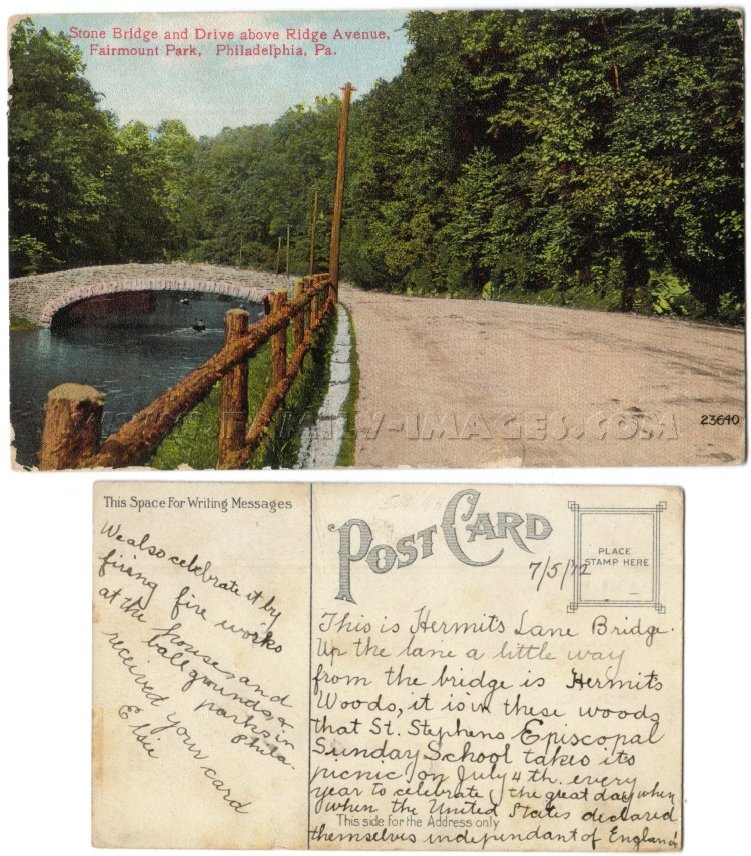 Stone Bridge and Drive above Ridge Avenue,
Fairmount Park, Philadelphia, Pa.
WWW.FAMILY-IMAGES.COM
23640
This Space For Writing Messages
We also celebrate it by
firing fire works
at the houses and
ball grounds &
parks in
Phila
received your card
Elsie
POST CARD
7/5/12
PLACE
STAMP HERE
This is Hermit's Lane Bridge.
Up the lane a little way
from the bridge is Hermit's
Woods, it is in these woods
that St. Stephens Episcopal
Sunday School takes its
picnic on July 4th. every
year to celebrate the great day when
when the United States declared
This side for the Address only
themselves independant of England